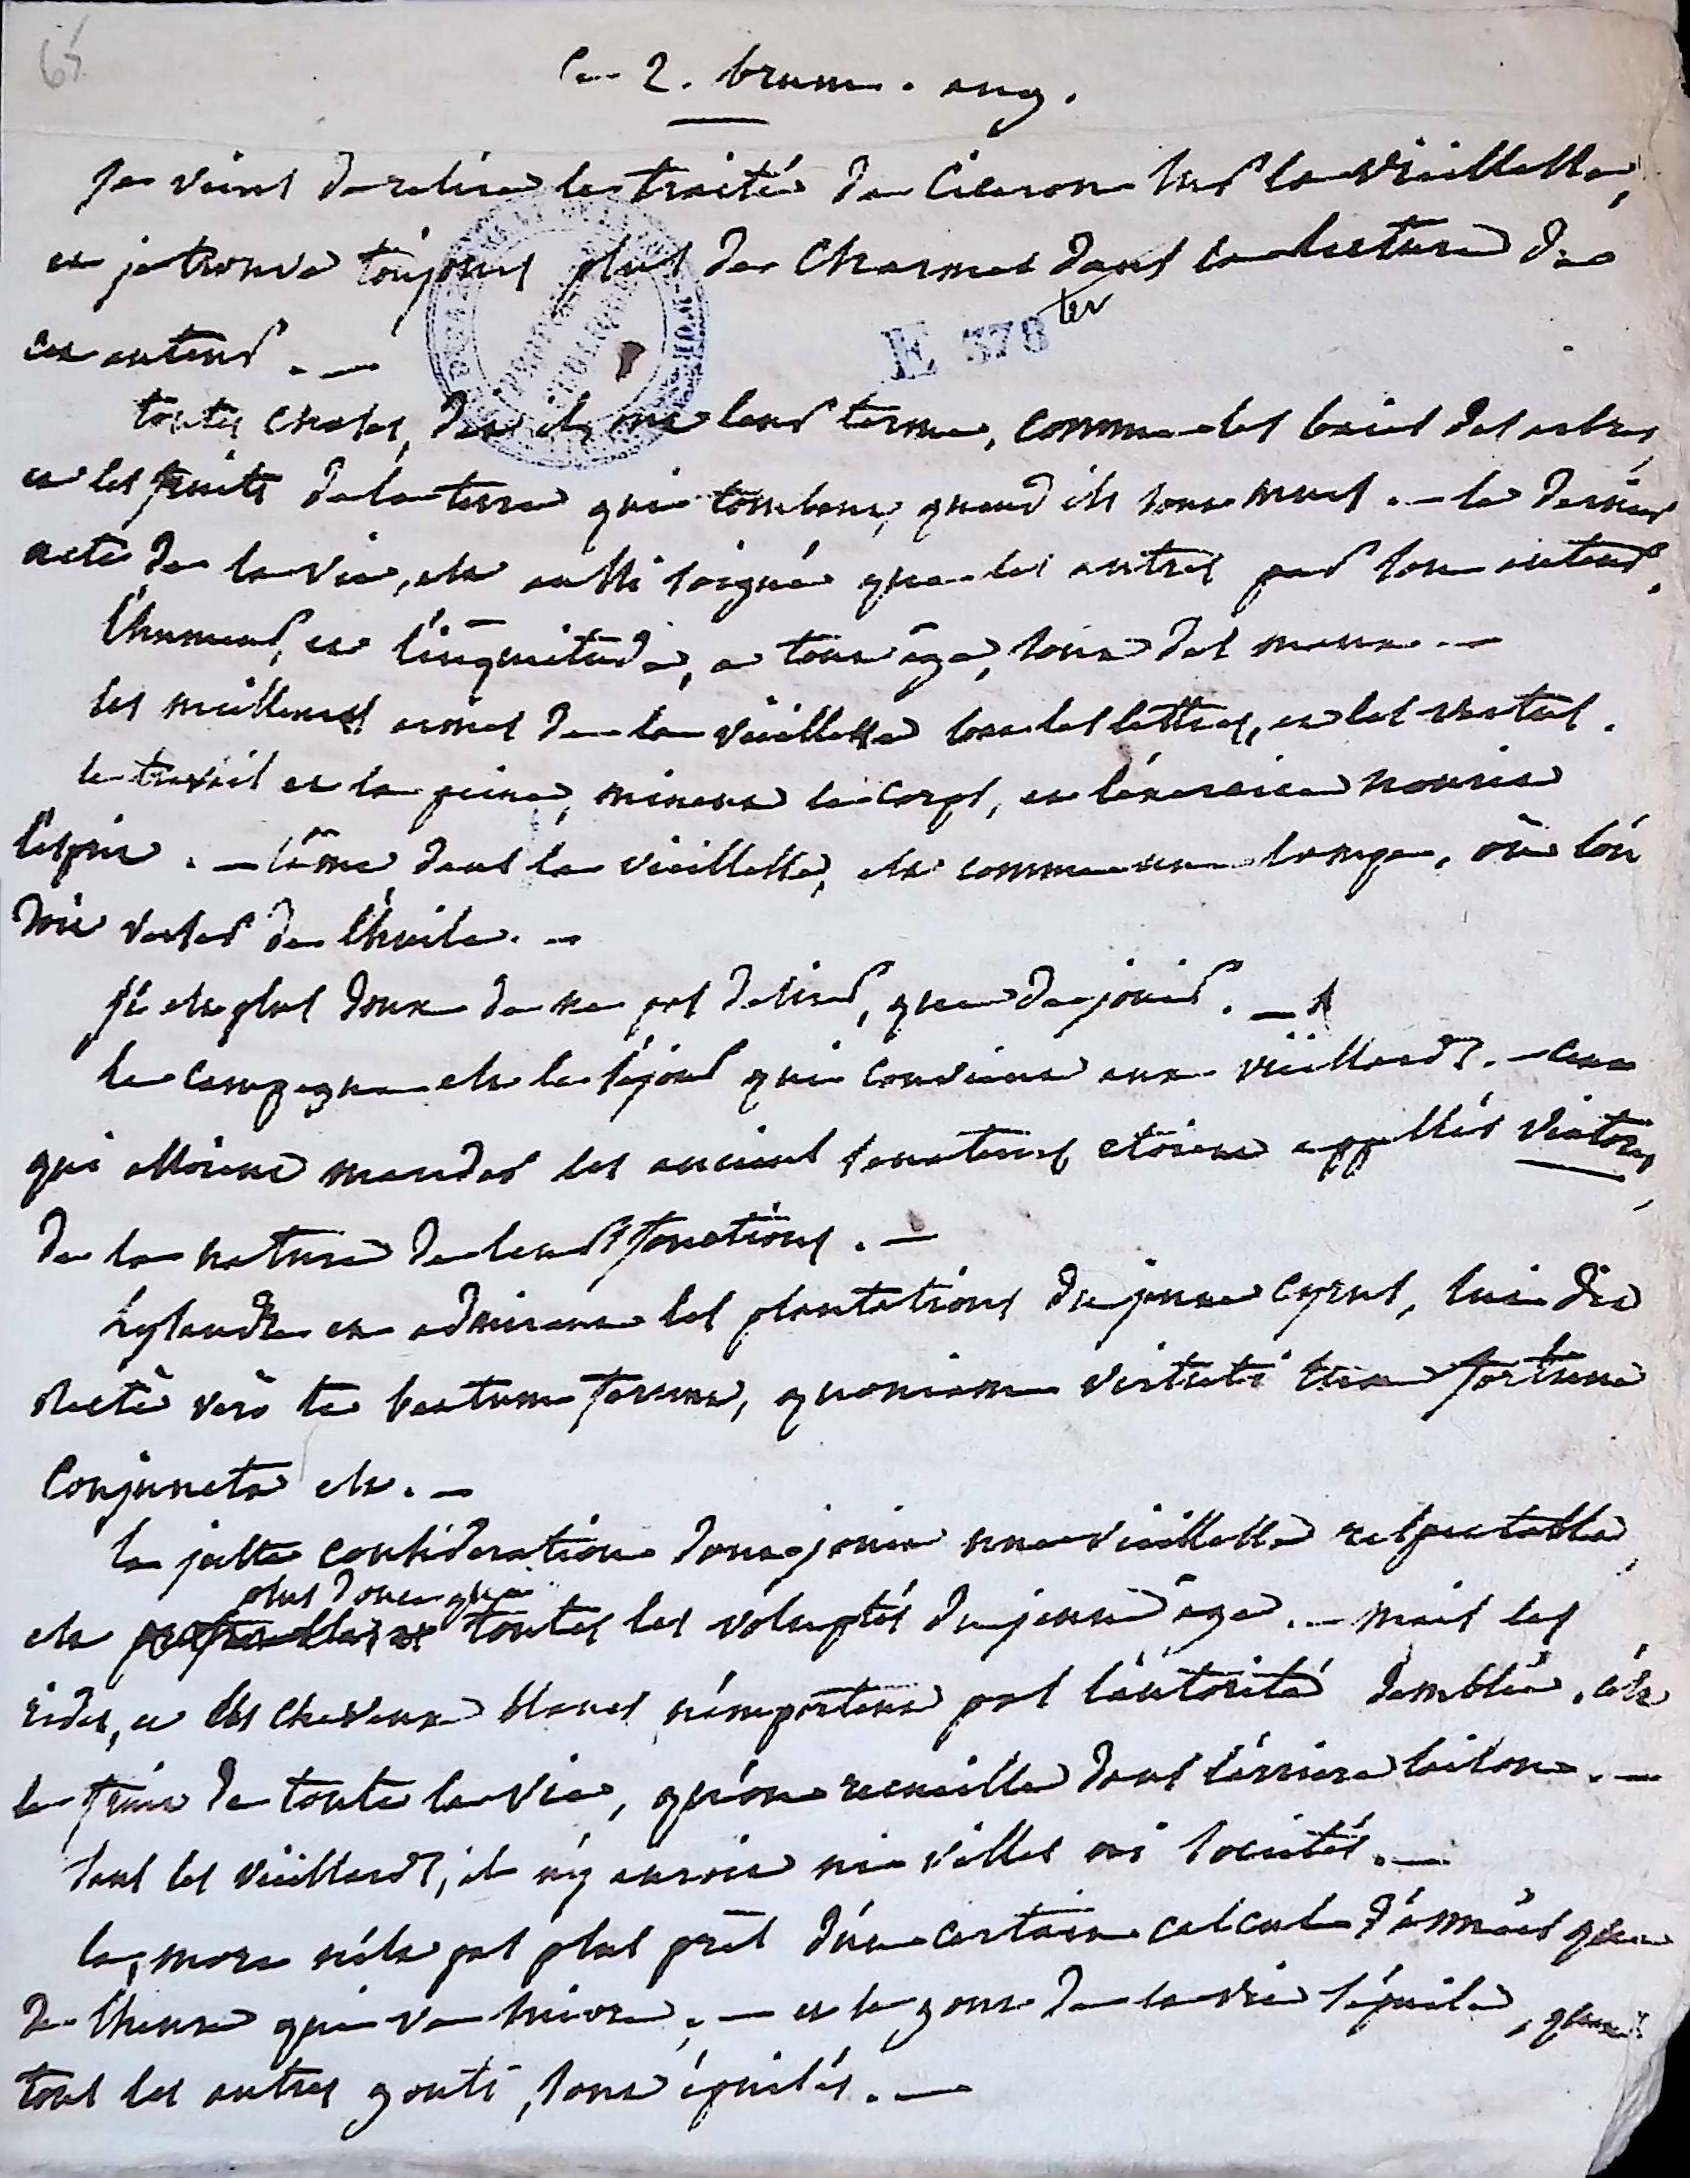 65
Ce 2. brum. an 9.
Je viens de relire le traité de Ciceron sur la vieillesse,
et je trouve toujours plus de charmes dans la lecture de
cet auteur. —
E 378 ter
toutes choses, dit il, ont leur terme, comme les baies des arbres,
et les fruits de la terre qui tombent, quand ils sont murs. — le dernier
acte de la vie, est aussi soigné que les autres par son auteur.
l'humeur, et l'inquietude, a tout âge, sont des maux. —
les meilleures armes de la vieillesse sont les lettres, et les vertus.
le travail et la peine, minent le corps, et l'exercice nourrit
l'esprit. — l'âme dans la vieillesse, est comme une lampe, où l'on
doit verser de l'huile. —
il est plus doux de ne pas desirer, que de jouir. —
la campagne est le séjour qui convient aux vieillards. — ceux
qui alloient mander les anciens senateurs etoient appellés viatores,
de la nature de leurs fonctions. —
Lysandre en admirant les plantations du jeune Cyrus, lui dit
rectè verò te beatum ferunt, quoniam virtuti tuae fortuna
conjuncta est. —
la juste consideration dont jouit une vieillesse respectable,
plus douce que
est toutes les voluptés du jeune âge. — mais les
rides, et les cheveux blancs n'emportent pas l'autorité d'emblée, c'est
le fruit de toute la vie, qu'on recueille dans l'arriere saison. —
sans les vieillards, il n'y auroit ni villes ni sociétés. —
la mort n'est pas plus près d'un certain calcul d'années que
de l'heure qui va suivre, — et le gout de la vie s'épuise, quand
tous les autres gouts, sont épuisés. —